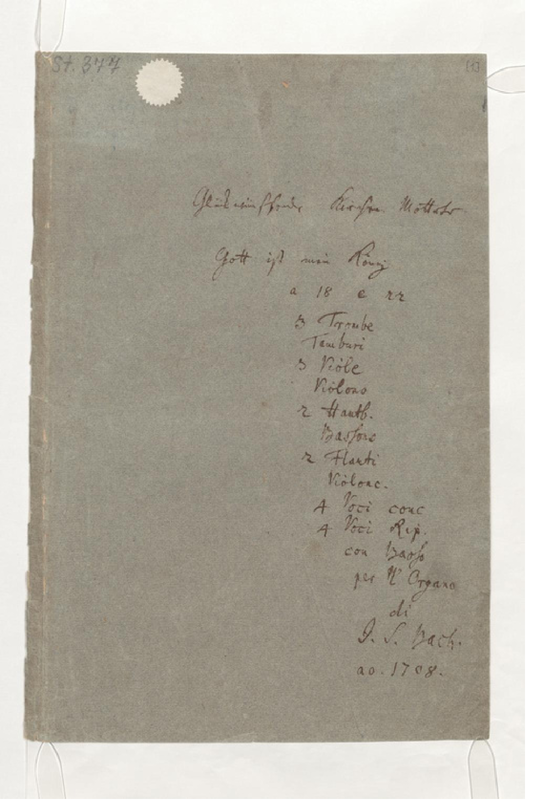 St. 377
[1]
Glückwünschende Kirchen Mottetto
Gott ist mein König
a 18 e 22
3 Trombe
Tamburi
3 Viole
Violono
2 Hautb.
Bassono
2 Flauti
Violonc.
4 Voci conc
4 Voci Rip.
con Basso
per l'Organo
di
J. S. Bach.
ao. 1708.